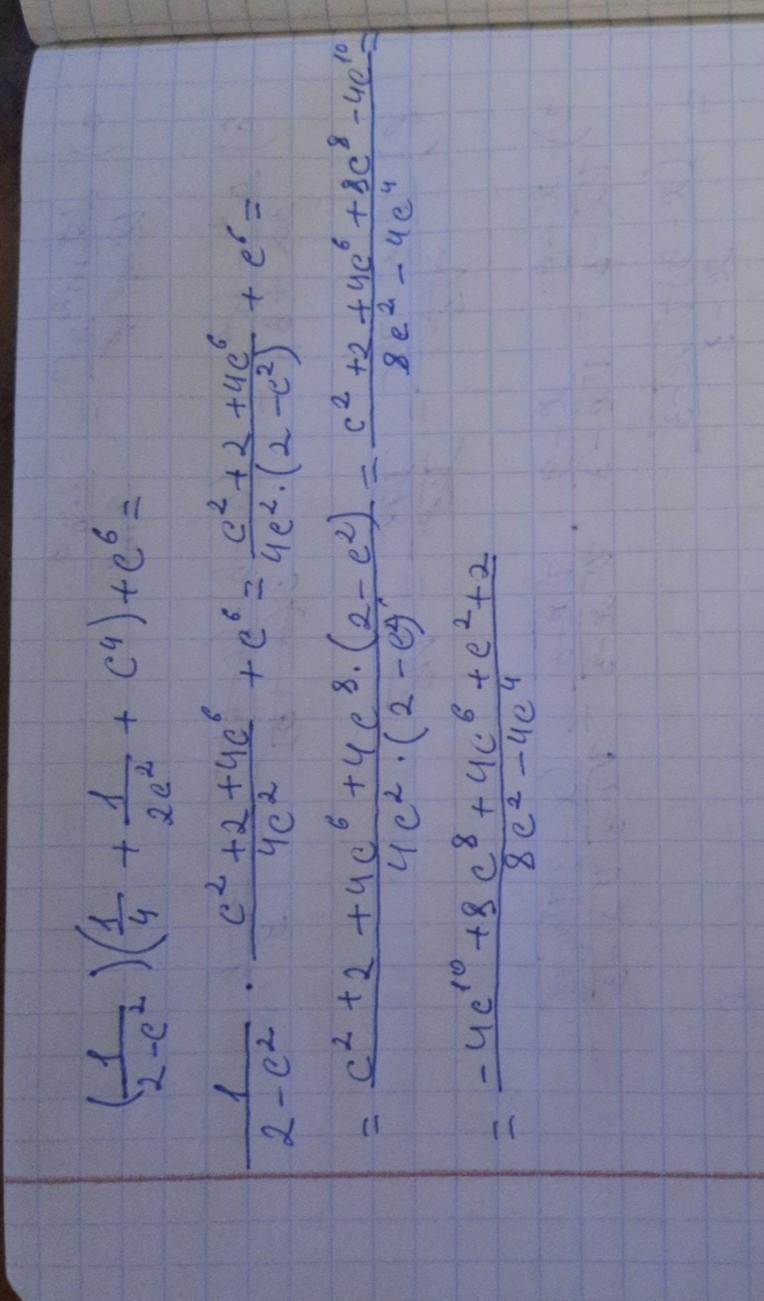 (1/(2-c²))(1/4 + 1/(2c²) + c⁴) + c⁶ =
1/(2-c²) · (c²+2+4c⁶)/(4c²) + c⁶ = (c²+2+4c⁶)/(4c²·(2-c²)) + c⁶ =
= (c²+2+4c⁶+4c⁸·(2-c²))/(4c²·(2-c²)) = (c²+2+4c⁶+8c⁸-4c¹⁰)/(8c²-4c⁴) =
= (-4c¹⁰+8c⁸+4c⁶+c²+2)/(8c²-4c⁴)